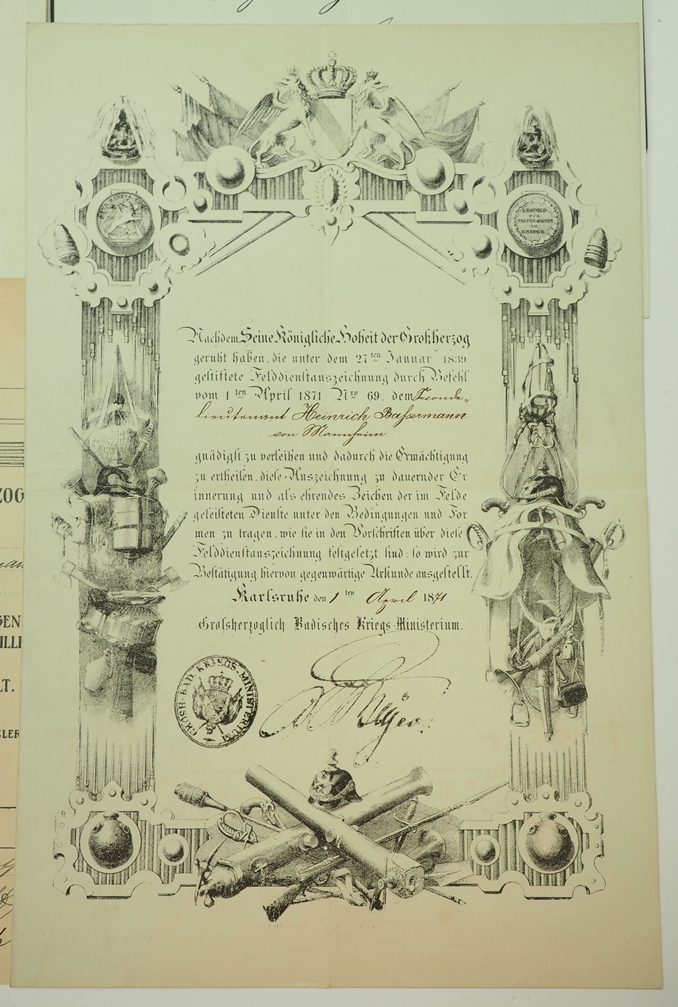 LEOPOLD
FÜR
TREUEN DIENST
IM
KRIEGE
Nachdem Seine Königliche Hoheit der Großherzog
geruht haben, die unter dem 27ten Januar 1839
gestiftete Felddienstauszeichnung durch Befehl
vom 1ten April 1871 Nro 69. dem Seconde-
lieutenant Heinrich Bassermann
von Mannheim
gnädigst zu verleihen und dadurch die Ermächtigung
zu ertheilen, diese Auszeichnung zu dauernder Er
innerung und als ehrendes Zeichen der im Felde
geleisteten Dienste unter den Bedingungen und For
men zu tragen, wie sie in den Vorschriften über diese
Felddienstauszeichnung festgesetzt sind; so wird zur
Bestätigung hiervon gegenwärtige Urkunde ausgestellt.
Karlsruhe den 1ten April 1871
Großherzoglich Badisches Kriegs-Ministerium.
GROSH. BAD. KRIEGS-MINISTERIUM
ZOG
LT.